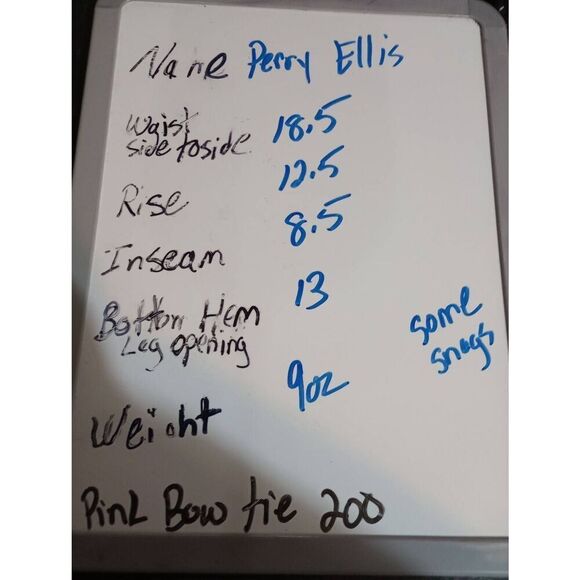 Name Perry Ellis
Waist
side to side 18.5
Rise 12.5
Inseam 8.5
Bottom Hem 13
Leg opening
some
snags
Weight 9oz
Pink Bow tie 200